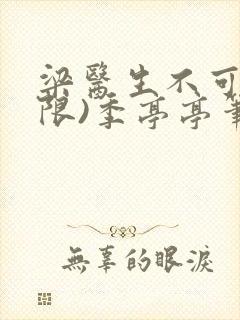 梁醫生不可
限)季亭亭筆
無辜的眼淚